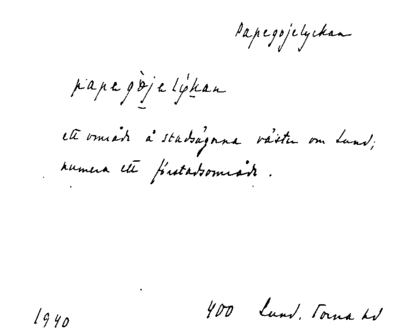 Papegojelyckan
papegòjelýkan
ett område å stadsägorna väster om Lund;
numera ett förstadsområde.
1940
400 Lund. Torna hd